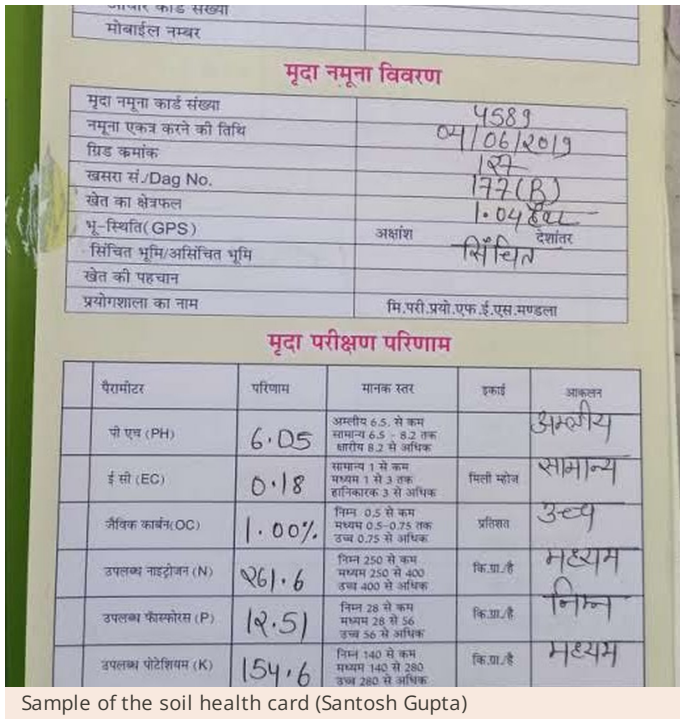 आधार कार्ड संख्या
मोबाईल नम्बर
मृदा नमूना विवरण
मृदा नमूना कार्ड संख्या 4589
नमूना एकत्र करने की तिथि 04/06/2019
ग्रिड क्रमांक
खसरा सं./Dag No. 177(B)
खेत का क्षेत्रफल 1.04
भू-स्थिति(GPS) अक्षांश देशांतर
सिंचित भूमि/असिंचित भूमि सिंचित
खेत की पहचान
प्रयोगशाला का नाम मि.परी.प्रयो.एफ.ई.एस.मण्डला
मृदा परीक्षण परिणाम
पैरामीटर परिणाम मानक स्तर इकाई आकलन
पी एच (PH) 6.05 अम्लीय 6.5. से कम अम्लीय
सामान्य 6.5 - 8.2 तक
क्षारीय 8.2 से अधिक
ई सी (EC) 0.18 सामान्य 1 से कम मिली म्होज सामान्य
मध्यम 1 से 3 तक
हानिकारक 3 से अधिक
जैविक कार्बन(OC) 1.00% निम्न 0.5 से कम प्रतिशत उच्च
मध्यम 0.5-0.75 तक
उच्च 0.75 से अधिक
उपलब्ध नाइट्रोजन (N) 261.6 निम्न 250 से कम कि.ग्रा./है मध्यम
मध्यम 250 से 400
उच्च 400 से अधिक
उपलब्ध फॅास्फोरस (P) 12.51 निम्न 28 से कम कि.ग्रा./है निम्न
मध्यम 28 से 56
उच्च 56 से अधिक
उपलब्ध पोटेशियम (K) 154.6 निम्न 140 से कम कि.ग्रा./है मध्यम
मध्यम 140 से 280
उच्च 280 से अधिक
Sample of the soil health card (Santosh Gupta)